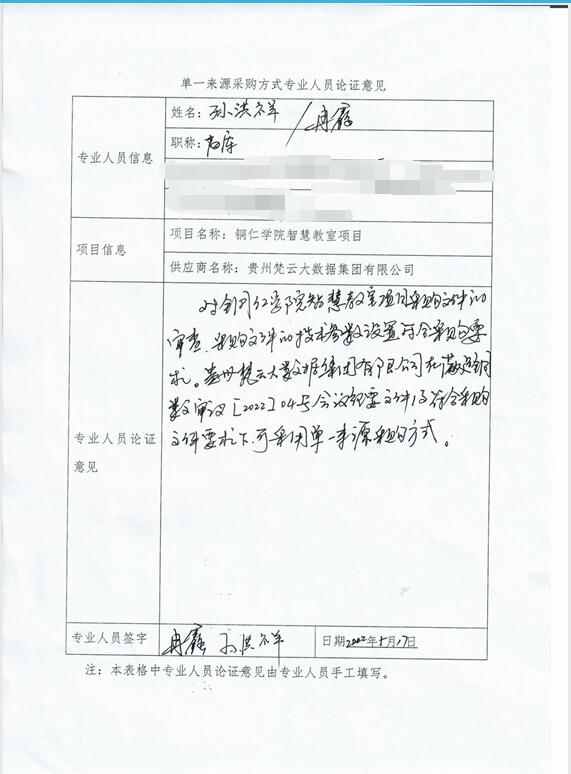 单一来源采购方式专业人员论证意见
专业人员信息
姓名：孙洪祥 / 冉
职称：
项目信息
项目名称：铜仁学院智慧教室项目
供应商名称：贵州梵云大数据集团有限公司
专业人员论证意见
对铜仁学院智慧教室项目采购文件的
审查，采购文件的技术参数设置符合采购要
求。贵州梵云大数据集团有限公司在满足铜
数审议［2022］04号会议纪要文件及符合采购
文件要求下，可采用单一来源采购方式。
专业人员签字
冉 孙洪祥
日期2022年5月17日
注：本表格中专业人员论证意见由专业人员手工填写。